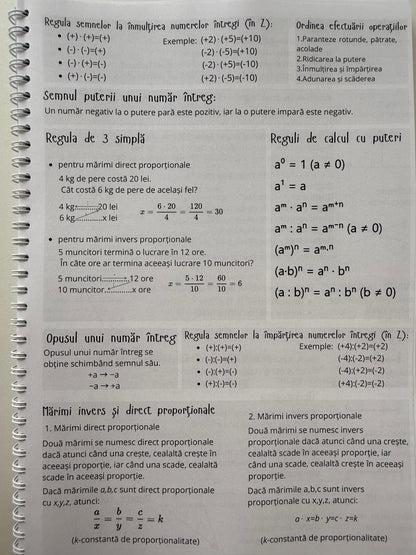 Regula semnelor la înmulțirea numerelor întregi (în Z):
• (+)·(+)=(+)
• (-)·(-)=(+)
• (-)·(+)=(-)
• (+)·(-)=(-)
Exemple: (+2)·(+5)=(+10)
(-2)·(-5)=(+10)
(-2)·(+5)=(-10)
(+2)·(-5)=(-10)
Ordinea efectuării operațiilor
1.Paranteze rotunde, pătrate,
acolade
2.Ridicarea la putere
3.Înmulțirea și împărțirea
4.Adunarea și scăderea
Semnul puterii unui număr întreg:
Un număr negativ la o putere pară este pozitiv, iar la o putere impară este negativ.
Regula de 3 simplă
• pentru mărimi direct proporționale
4 kg de pere costă 20 lei.
Cât costă 6 kg de pere de același fel?
4 kg..........20 lei
6 kg..........x lei
x = 6 · 20 / 4 = 120 / 4 = 30
• pentru mărimi invers proporționale
5 muncitori termină o lucrare în 12 ore.
În câte ore ar termina aceeași lucrare 10 muncitori?
5 muncitori..........12 ore
10 muncitor..........x ore
x = 5 · 12 / 10 = 60 / 10 = 6
Reguli de calcul cu puteri
a⁰ = 1 (a ≠ 0)
a¹ = a
aᵐ · aⁿ = aᵐ⁺ⁿ
aᵐ : aⁿ = aᵐ⁻ⁿ (a ≠ 0)
(aᵐ)ⁿ = aᵐ·ⁿ
(a·b)ⁿ = aⁿ · bⁿ
(a : b)ⁿ = aⁿ : bⁿ (b ≠ 0)
Opusul unui număr întreg
Opusul unui număr întreg se
obține schimbând semnul său.
+a → −a
−a → +a
Regula semnelor la împărțirea numerelor întregi (în Z):
• (+):(+)=(+)
• (-):(-)=(+)
• (-):(+)=(-)
• (+):(-)=(-)
Exemple: (+4):(+2)=(+2)
(-4):(-2)=(+2)
(-4):(+2)=(-2)
(+4):(-2)=(-2)
Mărimi invers și direct proporționale
1. Mărimi direct proporționale
Două mărimi se numesc direct proporționale
dacă atunci când una crește, cealaltă crește în
aceeași proporție, iar când una scade, cealaltă
scade în aceeași proporție.
Dacă mărimile a,b,c sunt direct proporționale
cu x,y,z, atunci:
a/x = b/y = c/z = k
(k-constantă de proporționalitate)
2. Mărimi invers proporționale
Două mărimi se numesc invers
proporționale dacă atunci când una crește,
cealaltă scade în aceeași proporție, iar
când una scade, cealaltă crește în aceeași
proporție.
Dacă mărimile a,b,c sunt invers
proporționale cu x,y,z, atunci:
a · x=b · y=c · z=k
(k-constantă de proporționalitate)